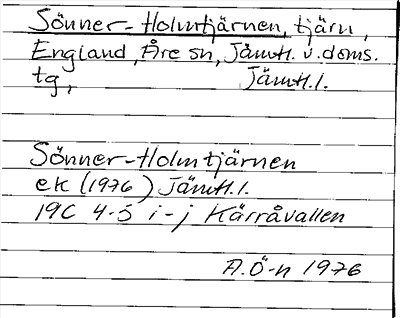 Sönner-Holmtjärnen, tjärn,
England, Åre sn, Jämtl. v. doms.
tg, Jämtl.l.
Sönner-Holmtjärnen
ek (1976) Jämtl.l.
19C 4-5 i-j Kärråvallen
A.Ö-n 1976